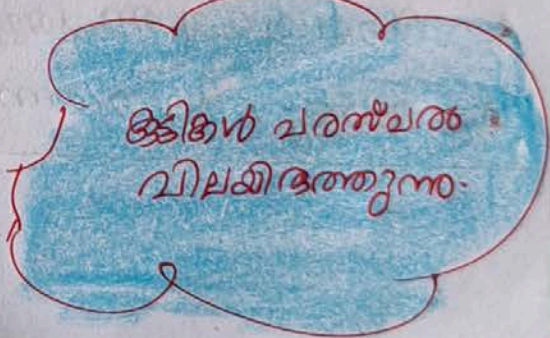 കുട്ടികൾ പരസ്പരം
വിലയിരുത്തുന്നു.